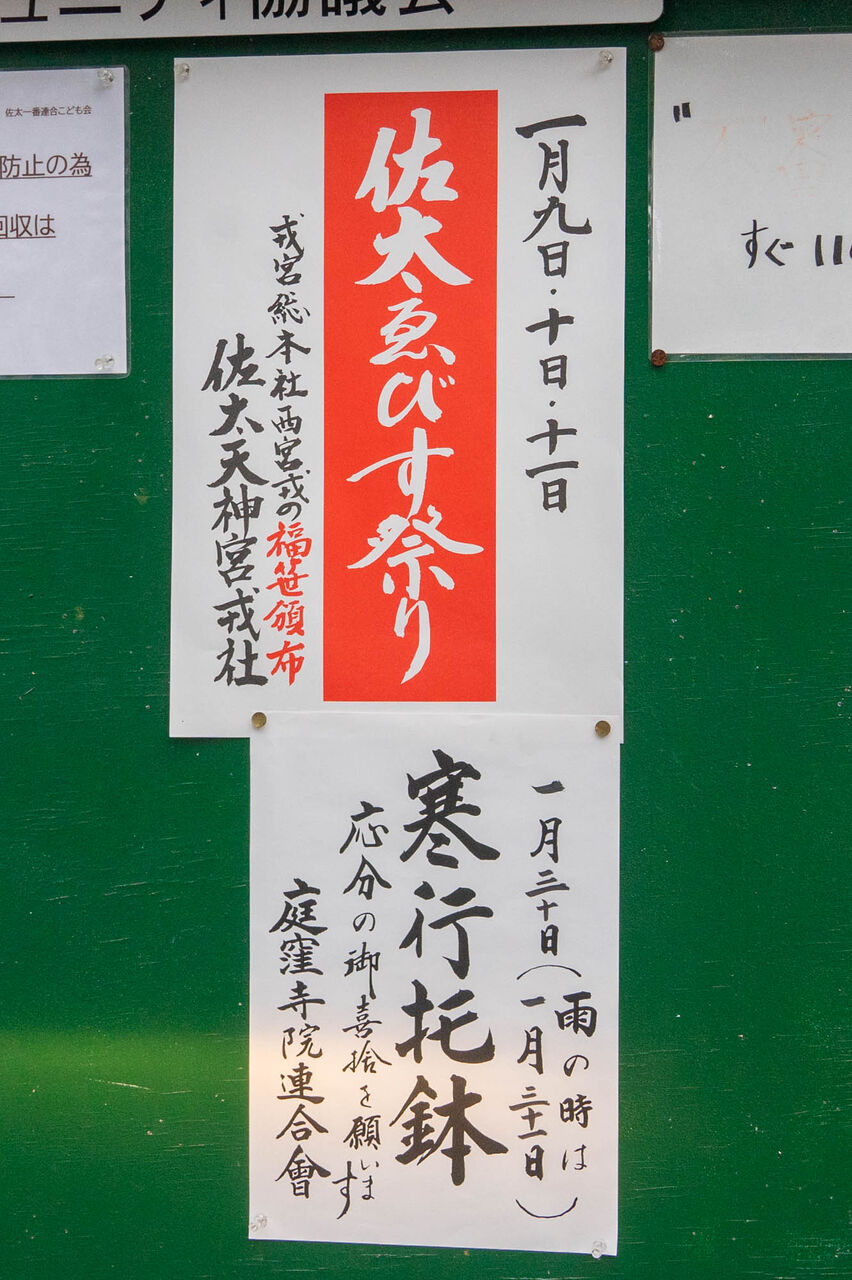 ュニティ協議会
佐太一番連合こども会
防止の為
回収は
一月九日・十日・十一日
佐太ゑびす祭り
戎宮総本社西宮戎の福笹頒布
佐太天神宮戎社
すぐ110
一月三十日(雨の時は一月三十一日)
寒行托鉢
応分の御喜捨を願います
庭窪寺院連合會